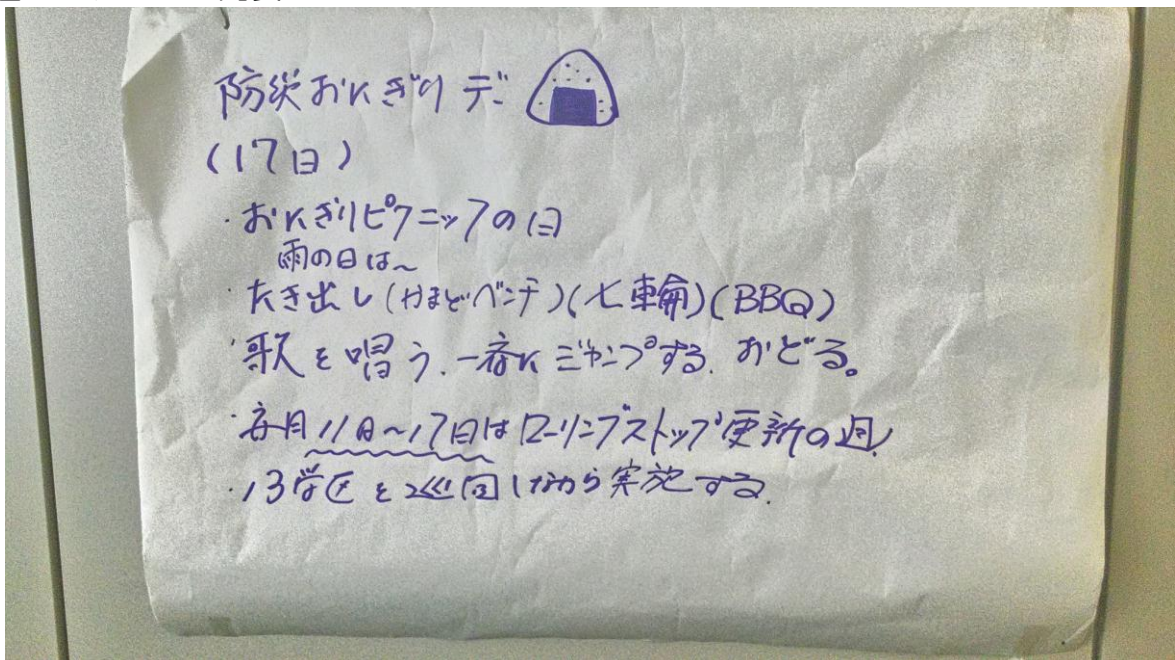 防災おにぎりデー
(17日)
・おにぎりピクニックの日
雨の日は〜
・たき出し(かまどベンチ)(七輪)(BBQ)
・歌を唱う.一斉にジャンプする.おどる。
・毎月11日〜17日はローリングストック更新の週.
・13学区を巡回しながら実施する.